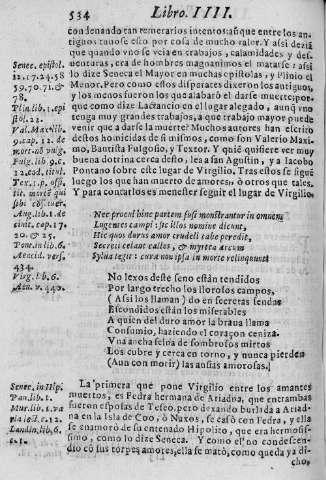 534 Libro IIII.
condenando tan temerarios intentos aũque entre los an-
tiguos tauose esto por cosa de mucho valor. Y assi dezia
que quando vno se veia en trabajos, calamidades, y des-
uenturas, era de hombres magnanimos el matarse: assi
lo dize Seneca el Mayor en muchas epistolas, y Plinio el
Menor. Pero como estos disparates dixeron los antiguos,
y los menos fueron los que alabaron el darse muerte: por-
que como dize Lactancio en el lugar alegado, aunq̃ vno
tenga muy grandes trabajos, a que trabajo mayor puede
venir que a darse la muerte? Muchos autores han escrito
destos homicidas de si mismos, como son Valerio Maxi-
mo, Bautista Fulgoso, y Textor. Y quiẽ quisiere ver muy
buena dotrina cerca desto, lea a san Agustin, y a Iacobo
Pontano sobre este lugar de Virgilio. Tras estos se siguẽ
luego los que han muerto de amores, ò otros que tales.
Y para contarlos es menester seguir el lugar de Virgilio.
Senec. epistol.
12. 17. 24. 58
59. 70. 71. &
78.
Plin. lib. 1. epi
stol. 22.
Val. Max. lib.
9. cap. 12. de
mort. nō vulg.
Fulg. lib. 9. c.
12. cod. titul.
Tex. 1. p. offi.
tit. mortē qui
sibi cōsciuer.
Aug. lib. 1. de
ciuit. cap. 17.
20. & 25.
Pont. in lib. 6.
Aeneid. vers.
434.
Virg. lib. 6.
Aen. v. 440.
Nec procul hinc partem fusi monstrantur in omnem
Lugentes campi: sic illos nomine dicunt,
Hic quos durus amor crudeli tabe peredit,
Secreti celant calles, & myrtea circum
Sylua tegit: curæ non ipsa in morte relinquunt
No lexos deste seno están tendidos
Por largo trecho los llorosos campos,
(Assi los llaman) do en secretas sendas
Escondidos están los miserables
A quien del duro amor la braua llama
Consumio, haziendo el coraçon ceniza.
Vna ancha selua de sombrosos mirtos
Los cubre y cerca en torno, y nunca pierden
(Aun con morir) las ansias amorosas.
La primera que pone Virgilio entre los amantes
muertos, es Fedra hermana de Ariadna, que entrambas
fueron esposas de Teseo. pero dexando burlada a Ariad-
na en la Isla de Coo, ò Naxos, se casò con Fedra, y ella
se enamorò de su entenado Hipolito, que era hermosis-
simo, como lo dize Seneca. Y como el no condescen-
dio cō sus torpes amores, ella se matò, como queda ya di-
cho,
Senec. in Hip.
Pan. lib. 1.
Mur. lib. 1. va
ria lect. c. 12.
Landin. lib. 6.
c. 1.